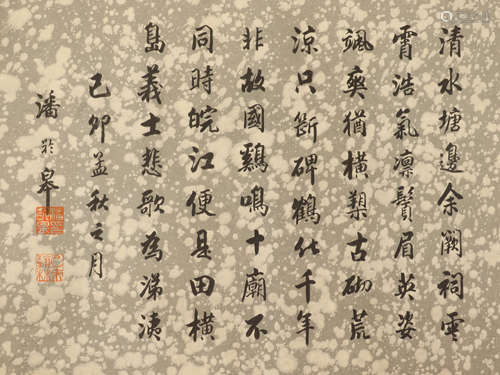 清水塘邊余闕祠雲
霄浩氣凛鬚眉英姿
颯爽猶橫槊古砌荒
涼只斷碑鶴化千年
非故國鷄鳴十廟不
同時皖江便是田橫
島義士悲歌為涕洟
己卯孟秋之月
潘齡皋